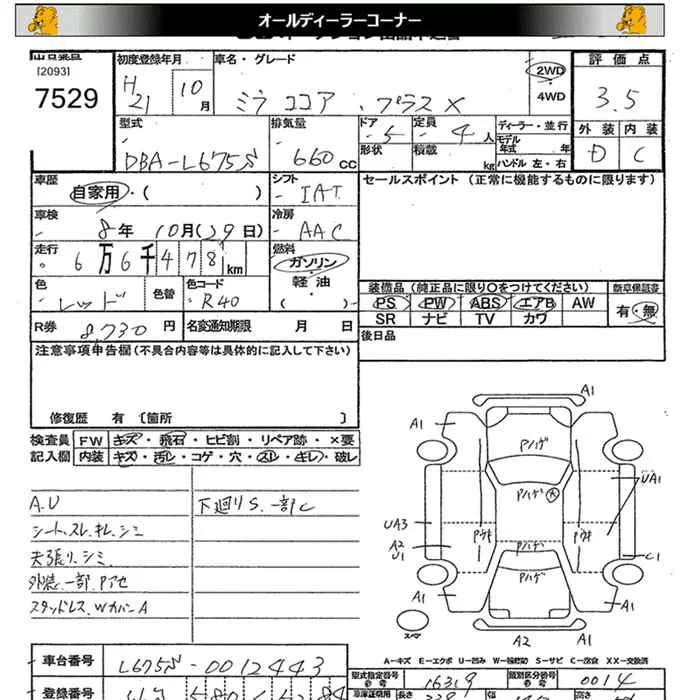 オールディーラーコーナー
[2093]
7529
初度登録年月
H21
10月
車名・グレード
ミラ ココア ・プラスX
2WD
・4WD
評価点
3.5
外装 内装
D C
型式
DBA-L675S
排気量
660 CC
ドア
5
形状
定員
4人
積載
kg
ディーラー・並行
モデル年式 年
ハンドル 左・右
車歴
自家用・( )
シフト
IAT
セールスポイント (正常に機能するものに限ります)
車検
8年 10月(29日)
冷房
AAC
走行
6万6千478km
燃料
ガソリン
軽油
( )
色
レッド
色替
色コード
R40
装備品(純正品に限り○をつけてください)
新車保証書
PS PW ABS エアB AW
SR ナビ TV カワ
有・無
R券
8,730円
名変通知期限 月 日
後日品
注意事項申告欄(不具合内容等は具体的に記入して下さい)
修復歴 有 [箇所 ]
検査員 FW キズ・飛石・ヒビ割・リペア跡・×要
記入欄 内装 キズ・汚レ・コゲ・穴・スレ・キレ・破レ
A.U
下廻りS.一部C
シート.スレ.キレ.シミ
天張リ.シミ
外装.一部.Pアセ
スタッドレス.WカバーA
A1
A1
A1
Pハゲ
Pハゲ
UA1
UA3
Pウキ
Pウキ
A2
U1
Pハゲ
C1
Pハゲ
A1
A1
スペア
A2
A1
A-キズ E-エクボ U-凹み W-補修跡 S-サビ C-腐食 XX-交換済
車台番号
L675S-0012443
型式指定番号
参考
16319
類別区分番号
参考
0014
登録番号
車庫証明用
長さ